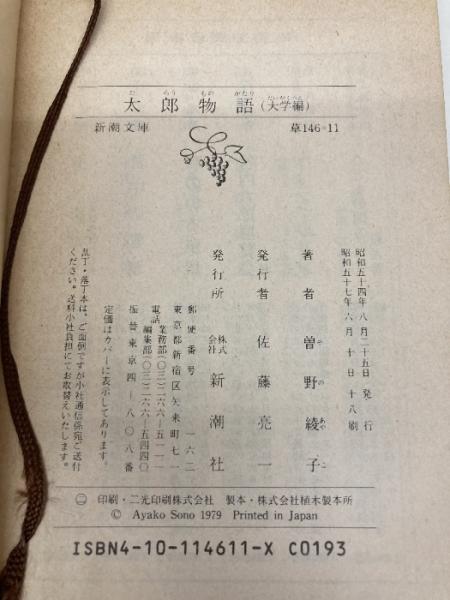 太郎物語（大学編）
新潮文庫 草146=11
昭和五十四年八月二十五日 発行
昭和五十七年六月十日 十八刷
著者 曽野綾子
発行者 佐藤亮一
発行所 株式会社 新潮社
郵便番号 一六二
東京都新宿区矢来町七一
電話 業務部(〇三)二六六―五一一一
編集部(〇三)二六六―五四四〇
振替東京四―八〇八番
定価はカバーに表示してあります。
乱丁・落丁本は、ご面倒ですが小社通信係宛ご送付
ください。送料小社負担にてお取替えいたします。
印刷・二光印刷株式会社 製本・株式会社植木製本所
© Ayako Sono 1979 Printed in Japan
ISBN4-10-114611-X C0193